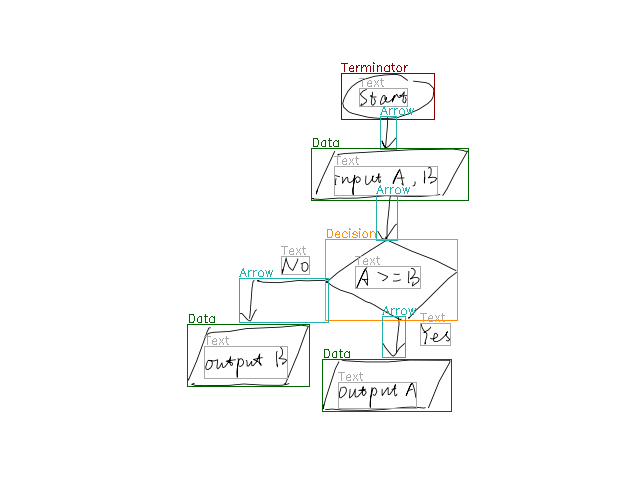 Terminator
Text
Start
Arrow
Data
Text
input A, B
Arrow
Decision
Text
No
Text
A >= B
Arrow
Arrow
Text
Yes
Data
Text
output B
Data
Text
output A